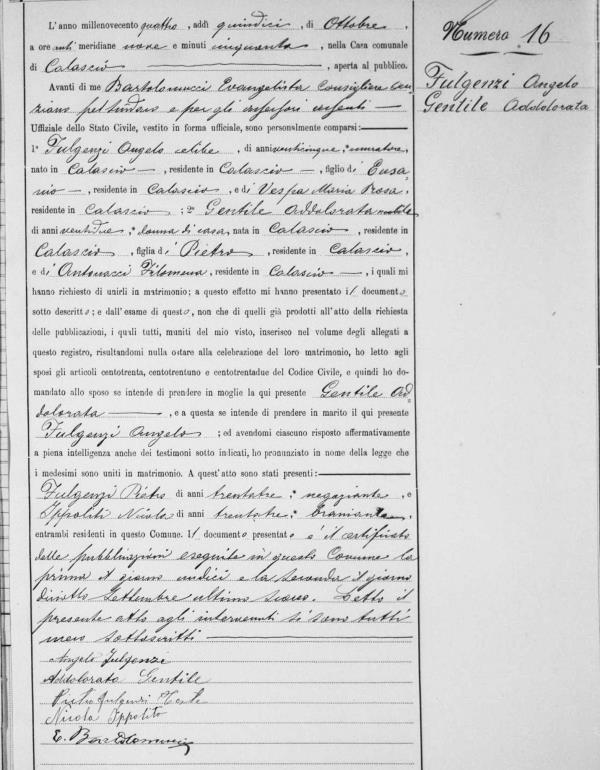 L'anno millenovecento quattro, addì quindici, di Ottobre,
a ore anti meridiane nove e minuti cinquanta, nella Casa comunale
di Calascio, aperta al pubblico.
Avanti di me Bartolomucci Evangelista Consigliere an
ziano pel sindaco e per gli assessori assenti
Uffiziale dello Stato Civile, vestito in forma ufficiale, sono personalmente comparsi:
1° Fulgenzi Angelo celibe, di anni venticinque, muratore,
nato in Calascio, residente in Calascio, figlio di Eusa
nio, residente in Calascio, e di Vespa Maria Rosa,
residente in Calascio; 2° Gentile Addolorata nubile
di anni ventidue, donna di casa, nata in Calascio, residente in
Calascio, figlia di Pietro, residente in Calascio,
e di Antonacci Filomena, residente in Calascio, i quali mi
hanno richiesto di unirli in matrimonio; a questo effetto mi hanno presentato il documento
sotto descritto; e dall'esame di questo, non che di quelli già prodotti all'atto della richiesta
delle pubblicazioni, i quali tutti, muniti del mio visto, inserisco nel volume degli allegati a
questo registro, risultandomi nulla ostare alla celebrazione del loro matrimonio, ho letto agli
sposi gli articoli centotrenta, centotrentuno e centotrentadue del Codice Civile, e quindi ho do-
mandato allo sposo se intende di prendere in moglie la qui presente Gentile Ad
dolorata, e a questa se intende di prendere in marito il qui presente
Fulgenzi Angelo; ed avendomi ciascuno risposto affermativamente
a piena intelligenza anche dei testimoni sotto indicati, ho pronunziato in nome della legge che
i medesimi sono uniti in matrimonio. A quest'atto sono stati presenti:
Fulgenzi Pietro di anni trentatre, negoziante, e
Ippoliti Nicola di anni trentatre,
entrambi residenti in questo Comune. Il documento presentato è il certificato
delle pubblicazioni eseguite in questo Comune la
prima il giorno undici e la seconda il giorno
diciotto Settembre ultimo scorso. Letto il
presente atto agli intervenuti si sono tutti
meco sottoscritti
Angelo Fulgenzi
Addolorata Gentile
Pietro Fulgenzi Teste
Nicola Ippolito
E. Bartolomucci
Numero 16
Fulgenzi Angelo
Gentile Addolorata